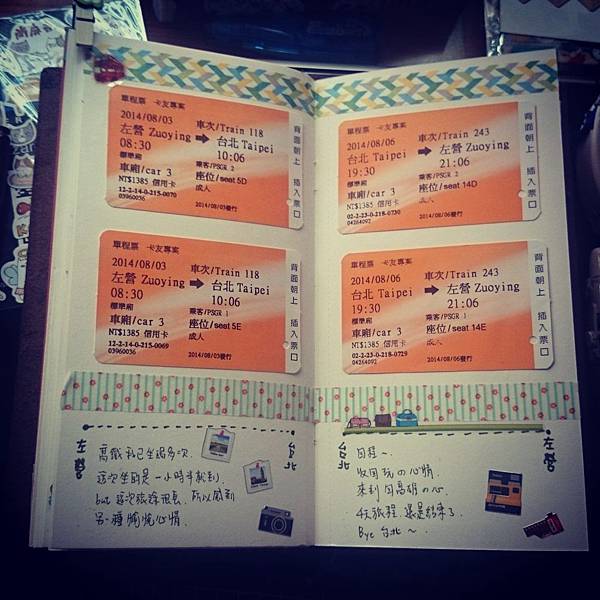 單程票 卡友專案
2014/08/03 車次/Train 118
左營 Zuoying ➡ 台北 Taipei
08:30 10:06
標準廂 乘客/PSGR 2
車廂/car 3 座位/seat 5D
NT$1385 信用卡 成人
12-2-14-0-215-0070
03960036 2014/08/03發行
背面朝上 插入票口
單程票 卡友專案
2014/08/03 車次/Train 118
左營 Zuoying ➡ 台北 Taipei
08:30 10:06
標準廂 乘客/PSGR 1
車廂/car 3 座位/seat 5E
NT$1385 信用卡 成人
12-2-14-0-215-0069
03960036 2014/08/03發行
背面朝上 插入票口
左營 台北
高鐵我已坐過多次.
這次坐的是一小時半就到.
but 這次旅途很長, 所以感到
另一種愉悅心情.
單程票 卡友專案
2014/08/06 車次/Train 243
台北 Taipei ➡ 左營 Zuoying
19:30 21:06
標準廂 乘客/PSGR 2
車廂/car 3 座位/seat 14D
NT$1385 信用卡 成人
02-2-23-0-218-0730
04264092 2014/08/06發行
背面朝上 插入票口
單程票 卡友專案
2014/08/06 車次/Train 243
台北 Taipei ➡ 左營 Zuoying
19:30 21:06
標準廂 乘客/PSGR 1
車廂/car 3 座位/seat 14E
NT$1385 信用卡 成人
02-2-23-0-218-0729
04264092 2014/08/06發行
背面朝上 插入票口
台北 左營
回程~
收回玩の心情.
來到回高雄の心.
4天旅程, 還是結束了.
Bye 台北~